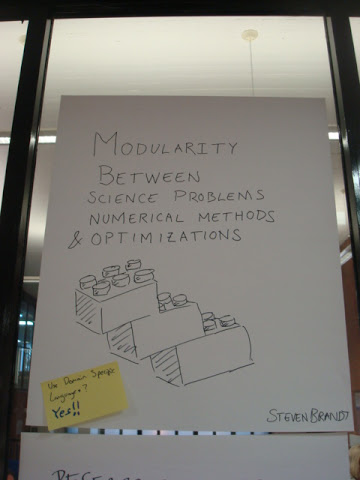 MODULARITY
BETWEEN
SCIENCE PROBLEMS
NUMERICAL METHODS
& OPTIMIZATIONS
Use Domain Specific
Languages?
Yes!!
STEVEN BRANDT